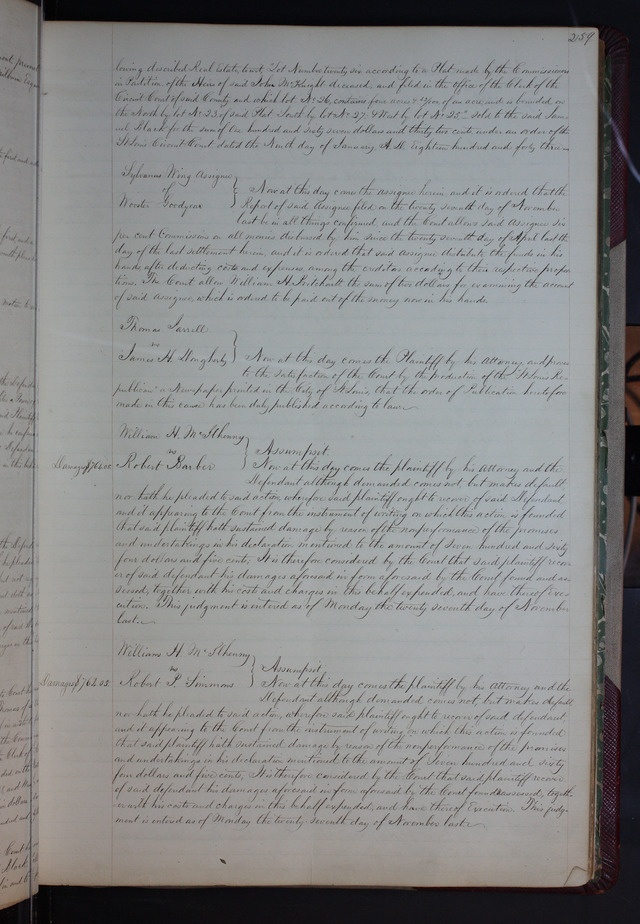 259
lowing described Real Estate to wit, Lot Number twenty six according to a Plat made by the Commissioners
in Partition of the Heirs of said John McKnight deceased and filed in the Office of the Clerk of the
Circuit Court of said County and which lot No 26, contains four acres & /100 of an acre and is bounded on
the North by lot No 23 of said Plat South by lot No 27. & West by lot No 25" sold to the said Sam-
uel Black for the sum of One hundred and sixty seven dollars and thirty two cents under an order of the
St Louis Circuit Court dated the Ninth day of January A.D. Eighteen hundred and forty three
Sylvanus Wing Assignee
of
Wooster Goodyear
Now at this day comes the assignee herein and it is ordered that the
Report of said Assignee filed on the twenty seventh day of November
last be in all things confirmed, and the Court allows said Assignee six
per cent Commission on all monies disbursed by him since the twenty seventh day of April last the
day of the last settlement herein, and it is ordered that said assignee distribute the funds in his
hands after deducting costs and expenses, among the creditors according to their respective propor
tions. The Court allow William H. the sum of two dollars for examining the account
of said Assignee, which is ordered to be paid out of the money now in his hands.
Thomas Farrell
vs
James H Dougherty
Now at this day comes the Plaintiff by his Attorney and proves
to the satisfaction of the Court by the production of the "St Louis Re-
publican" a Newspaper printed in the City of St Louis, that the order of Publication heretofore
made in this cause has been duly published according to law
William H. McIlhenny
vs
Robert Barber
Assumpsit
Damages $764.05
Now at this day comes the plaintiff by his Attorney and the
Defendant although demanded comes not but makes default
nor hath he pleaded to said action, wherefore said plaintiff ought to recover of said Defendant,
and it appearing to the Court from the instrument of writing on which this action is founded
that said plaintiff hath sustained damage by reason of the nonperformance of the promises
and undertakings in his declaration mentioned to the amount of Seven hundred and sixty
four dollars and five cents, It is therefore considered by the Court that said plaintiff recov
er of said defendant his damages aforesaid in form aforesaid by the Court found and as
sessed, together with his cost and charges in this behalf expended, and have thereof Exe
cution. This judgment is entered as of Monday the twenty seventh day of November
last.
William H McIlhenny
vs
Robert P. Simmons
Assumpsit
Damages $764.05
Now at this day comes the plaintiff by his Attorney and the
Defendant although demanded comes not, but makes default,
nor hath he pleaded to said action, wherefore said plaintiff ought to recover of said defendant,
and it appearing to the Court from the instrument of writing on which this action is founded
that said plaintiff hath sustained damage by reason of the nonperformance of the promises
and undertakings in his declaration mentioned to the amount of Seven hundred and sixty
four dollars and five cents, It is therefore considered by the Court that said plaintiff recover
of said defendant his damages aforesaid in form aforesaid by the Court found & assessed, togeth
er with his cost and charges in this behalf expended, and have thereof Execution. This judg-
ment is entered as of Monday the twenty seventh day of November last.